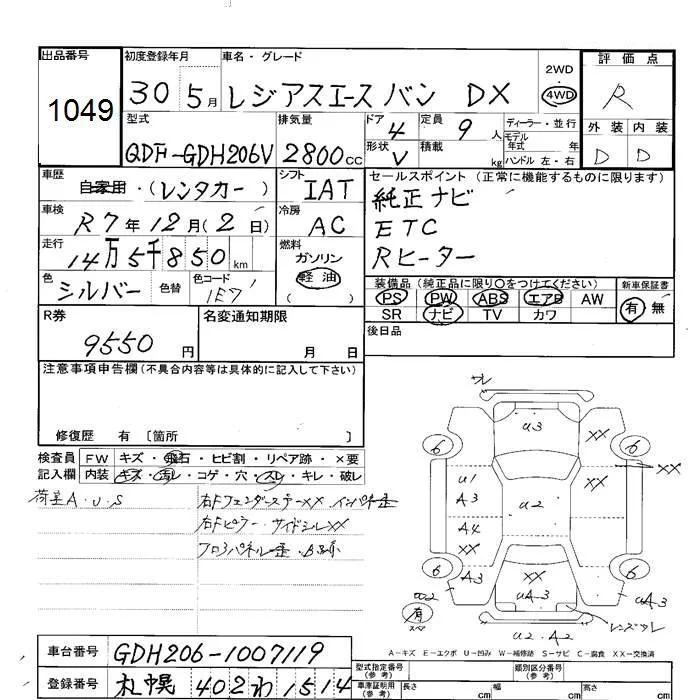 出品番号
1049
初度登録年月
30 5月
車名・グレード
レジアスエース バン DX
2WD
4WD
評価点
R
型式
QDF-GDH206V
排気量
2800cc
ドア
4
形状
V
定員
9人
積載
kg
ディーラー・並行
モデル
年式 年
ハンドル 左・右
外装 内装
D D
車歴
自家用・(レンタカー)
シフト
IAT
セールスポイント (正常に機能するものに限ります)
純正ナビ
ETC
Rヒーター
車検
R7年12月(2日)
冷房
AC
走行
14万5千850km
燃料
ガソリン
軽油
( )
色
シルバー
色替
色コード
1E7
装備品(純正品に限り○をつけてください)
PS PW ABS エアB AW
SR ナビ TV カワ
新車保証書
有 無
R券
9550円
名変通知期限
月 日
後日品
注意事項申告欄(不具合内容等は具体的に記入して下さい)
修復歴 有 〔箇所 〕
検査員 FW キズ・飛石・ヒビ割・リペア跡・×要
記入欄 内装 キズ・汚レ・コゲ・穴・スレ・キレ・破レ
A・U・S
右Fフェンダーステー××
右Fピラー サイドシル××
サレ
u3
××
6 6
××
××
u1
A3
u2
A4
××
6 6
A3
××
uA3
u2
uA3
有
スペア
u2・A2
レンズワレ
A-キズ E-エクボ U-凹み W-補修跡 S-サビ C-腐食 XX-交換済
車台番号
GDH206-1007119
登録番号
札幌 402わ1514
型式指定番号
(参考)
類別区分番号
(参考)
車庫証明用
(参考)
長さ cm 幅 cm 高さ cm